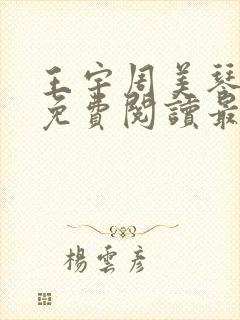 王宇周美琴
免費閱讀最
楊雲彥